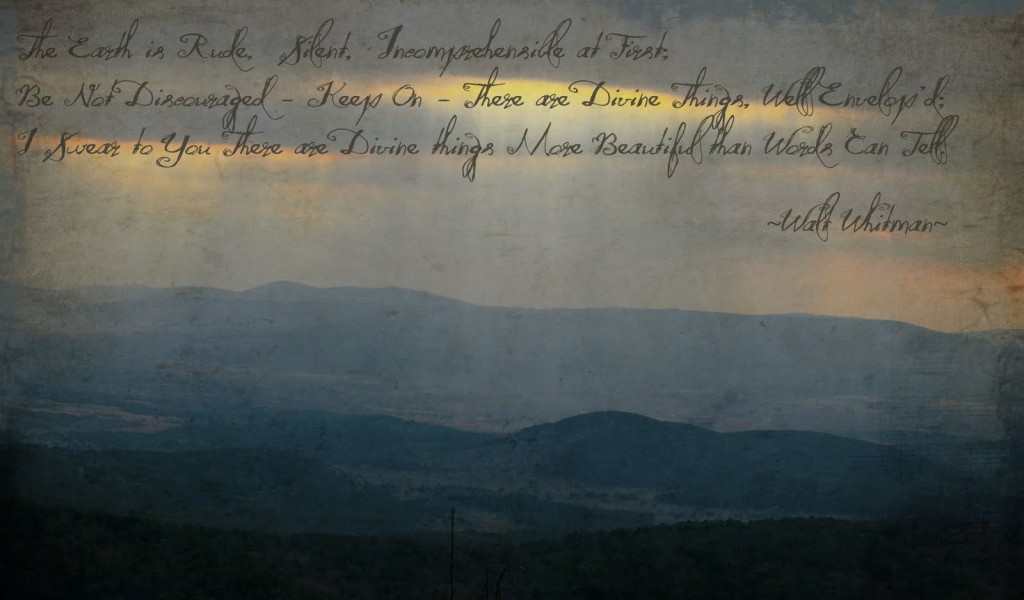 The Earth is Rude, Silent, Incomprehensible at First;
Be Not Discouraged - Keep On - There are Divine Things, Well Envelop'd;
I Swear to You There are Divine things More Beautiful than Words Can Tell
~Walt Whitman~